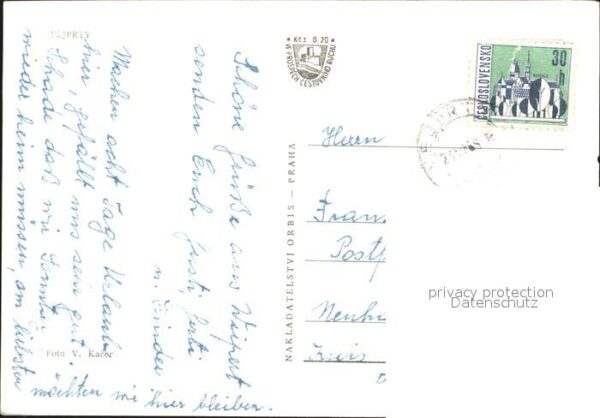 VEJPRTY
Kčs 0,20
VE PROSPĚCH CESTOVNÍHO RUCHU
ČESKOSLOVENSKO
30
h
Schöne Grüße aus Weipert
senden Euch Gusti,
u. Kinder
Machen acht Tage Urlaub
hier, gefällt uns sehr gut.
Schade daß wir Sonntag
wieder heim müssen, am liebsten
möchten wir hier bleiben.
Foto V. Kacer
NAKLADATELSTVÍ ORBIS — PRAHA
Herrn
Fran
Post
Neuh
Kreis
privacy protection
Datenschutz